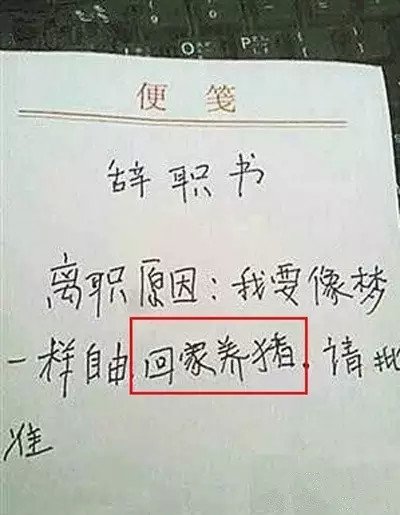 O P
便笺
辞职书
离职原因:我要像梦
一样自由.回家养猪.请批
准